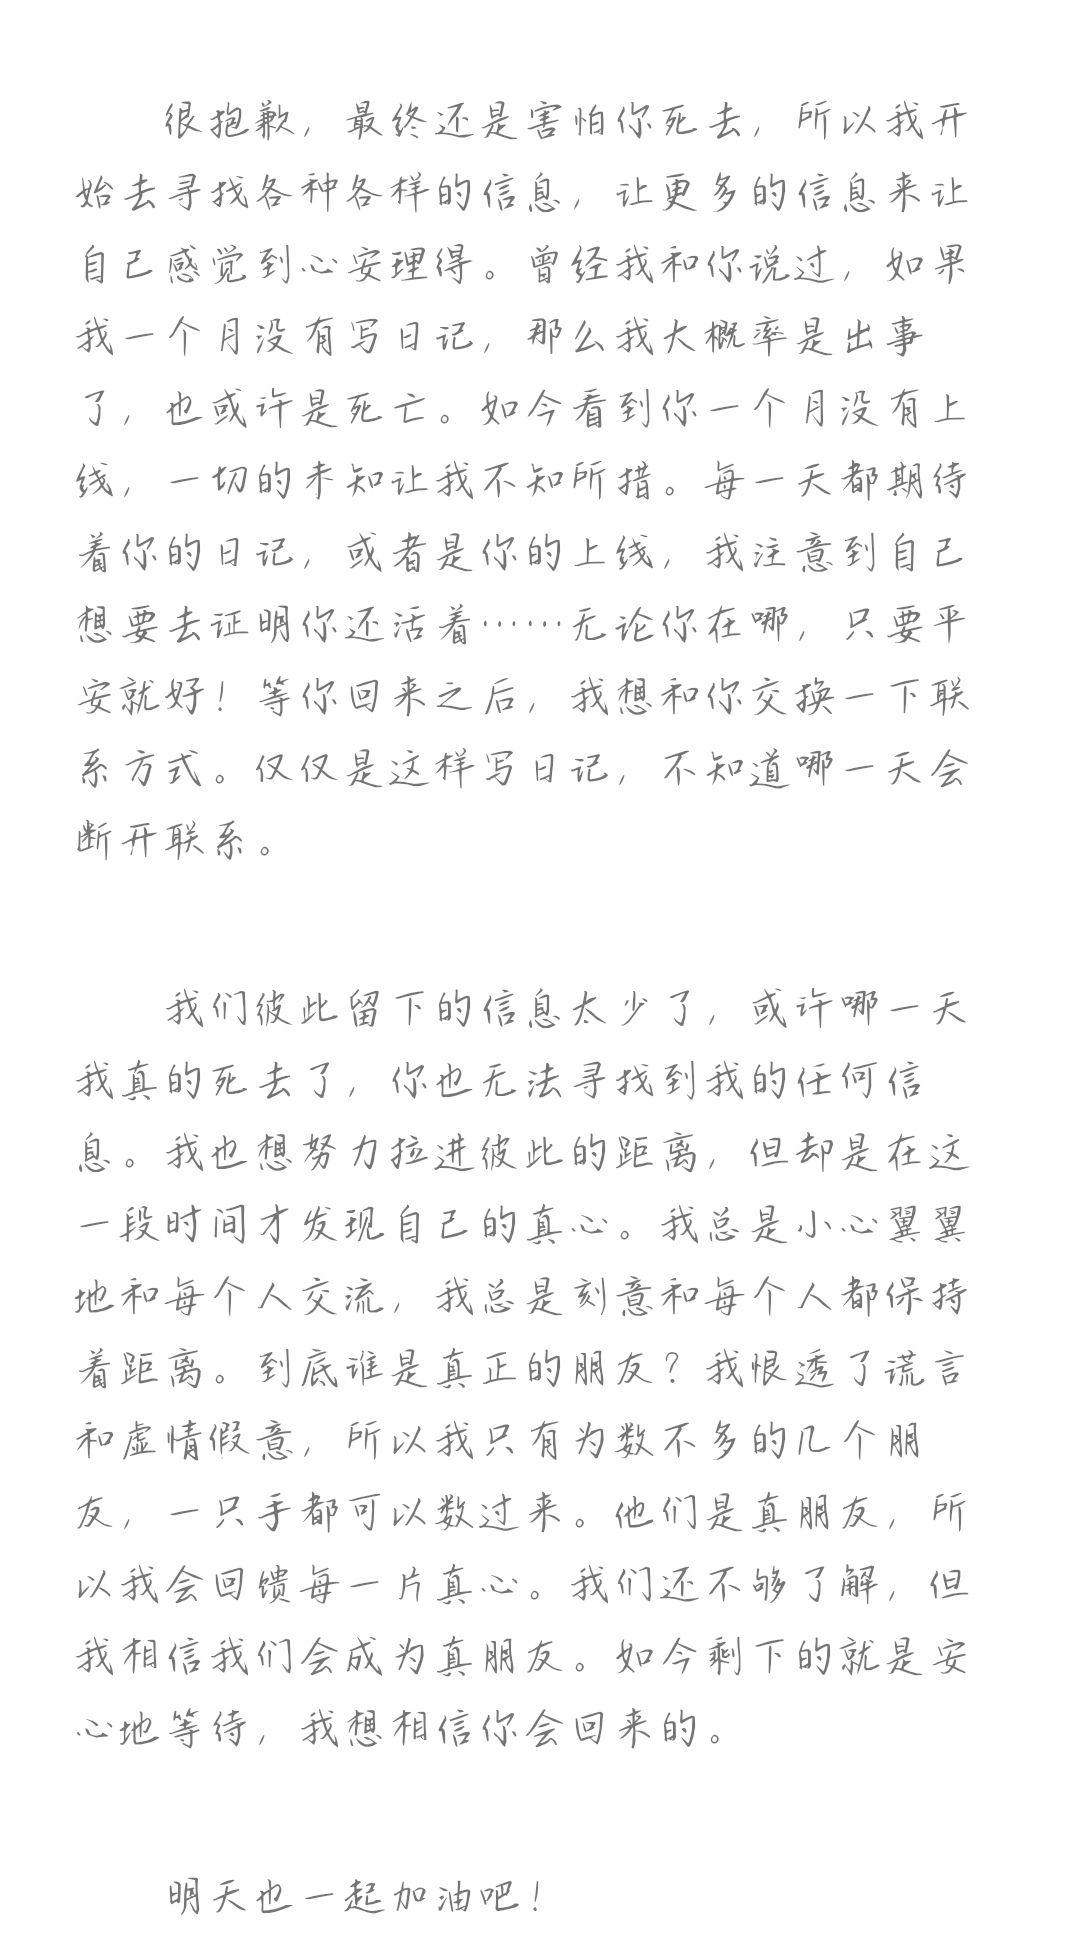 很抱歉，最终还是害怕你死去，所以我开
始去寻找各种各样的信息，让更多的信息来让
自己感觉到心安理得。曾经我和你说过，如果
我一个月没有写日记，那么我大概率是出事
了，也或许是死亡。如今看到你一个月没有上
线，一切的未知让我不知所措。每一天都期待
着你的日记，或者是你的上线，我注意到自己
想要去证明你还活着……无论你在哪，只要平
安就好！等你回来之后，我想和你交换一下联
系方式。仅仅是这样写日记，不知道哪一天会
断开联系。
我们彼此留下的信息太少了，或许哪一天
我真的死去了，你也无法寻找到我的任何信
息。我也想努力拉进彼此的距离，但却是在这
一段时间才发现自己的真心。我总是小心翼翼
地和每个人交流，我总是刻意和每个人都保持
着距离。到底谁是真正的朋友？我恨透了谎言
和虚情假意，所以我只有为数不多的几个朋
友，一只手都可以数过来。他们是真朋友，所
以我会回馈每一片真心。我们还不够了解，但
我相信我们会成为真朋友。如今剩下的就是安
心地等待，我想相信你会回来的。
明天也一起加油吧！